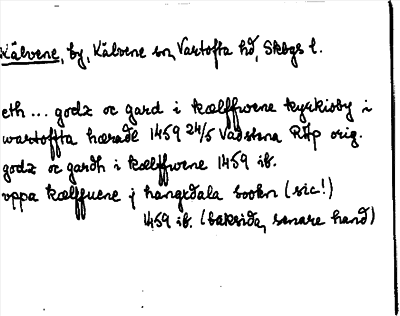 Kälvene, by, Kälvene sn, Vartofta hd, Skbgs l.
eth ... godz oc gard i kælffwene kyrkioby i
wartoffta hæradæ 1459 24/5 Vadstena RAp orig.
godz oc gardh i kælffwene 1459 ib.
vppa kælffuene j hangedala sookn (sic!)
1459 ib. (baksida, senare hand)